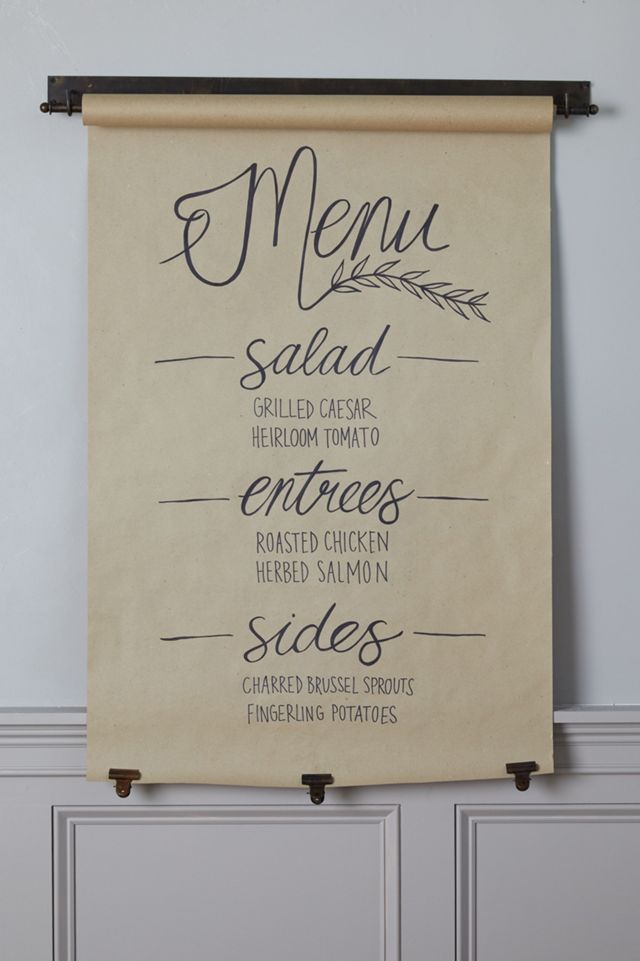 Menu
salad
GRILLED CAESAR
HEIRLOOM TOMATO
entrees
ROASTED CHICKEN
HERBED SALMON
sides
CHARRED BRUSSEL SPROUTS
FINGERLING POTATOES